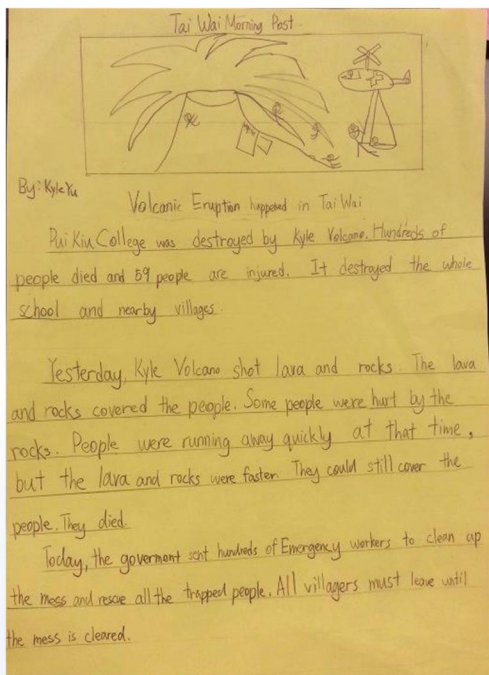 Tai Wai Morning Post
By: Kyle Yu
Volcanic Eruption happened in Tai Wai
Pui Kiu College was destroyed by Kyle Volcano. Hundreds of
people died and 59 people are injured. It destroyed the whole
school and nearby villages.
Yesterday, Kyle Volcano shot lava and rocks. The lava
and rocks covered the people. Some people were hurt by the
rocks. People were running away quickly at that time,
but the lava and rocks were faster. They could still cover the
people. They died.
Today, the goverment sent hundreds of Emergency workers to clean up
the mess and rescue all the trapped people. All villagers must leave until
the mess is cleared.